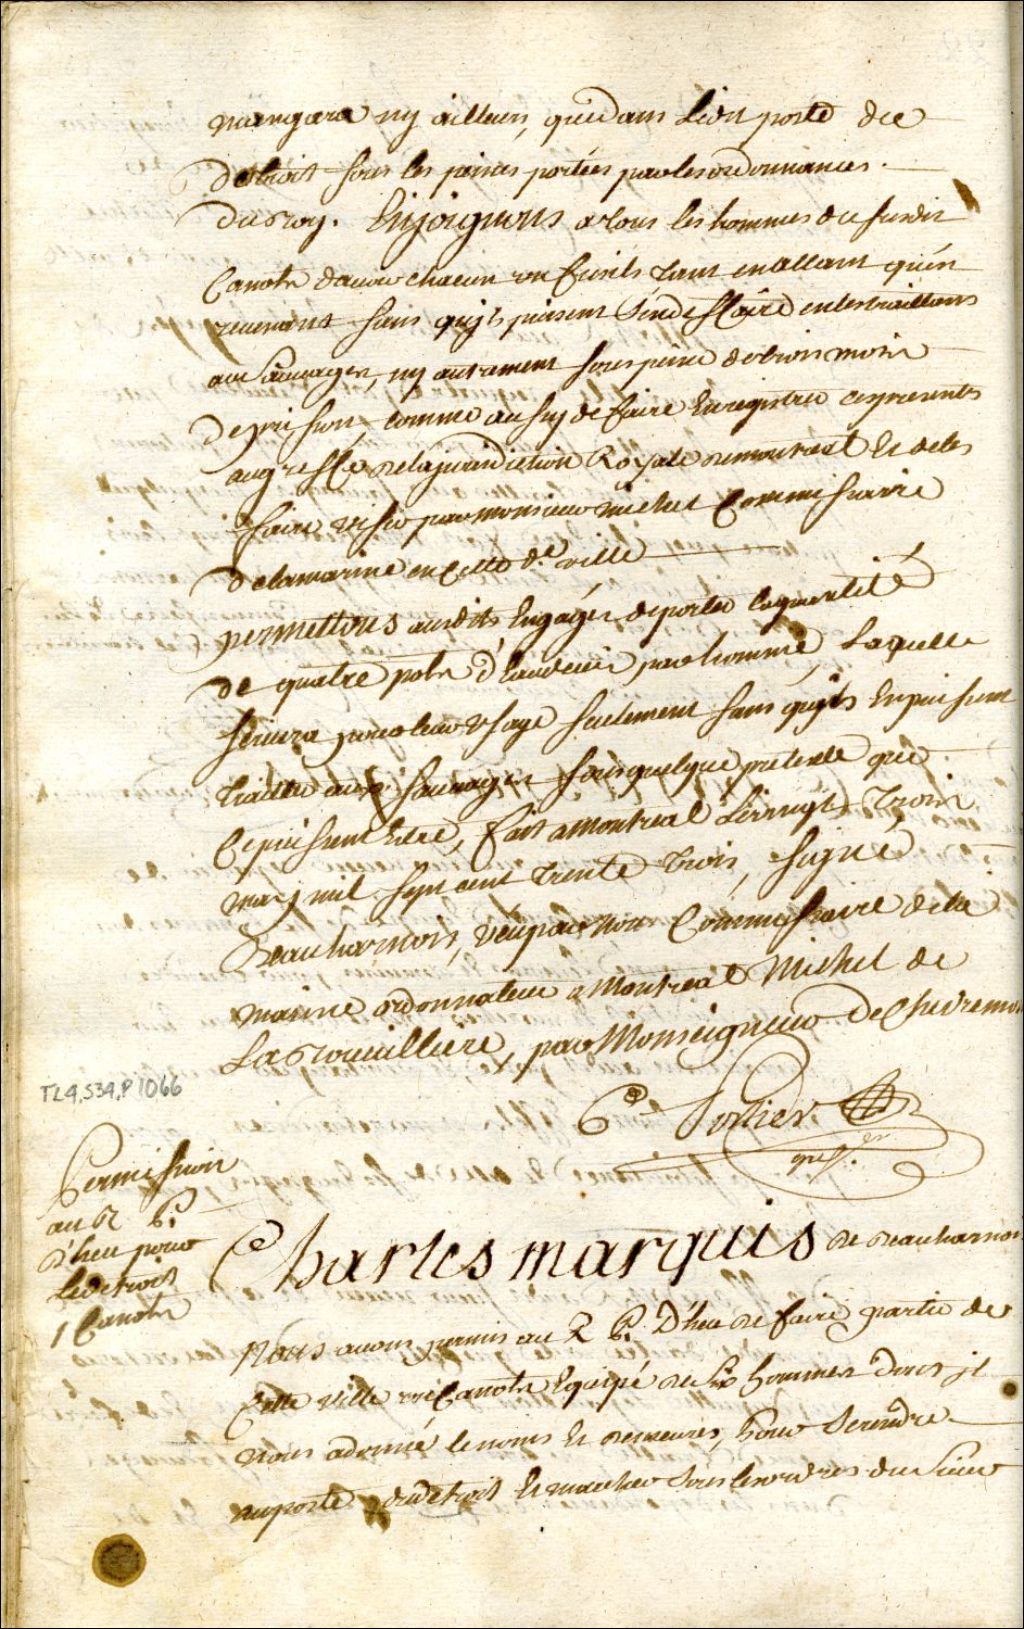 niangara ny ailleurs, que dans ledit poste du
detroit sous les peines portées par les ordonnances
du Roy. Enjoignons a tous les hommes du susdit
Canots d'avoir chacun un fusils tant en allant qu'en
revenant sans qu'jls puissent s'en deffaire en les traittans
aux Sauvages, ny autrement sous peine de trois mois
de prison comme aussy de faire Enregistrer ces presents
au greffe de la jurisdiction Royale de montreal Et de les
faire viser par monsieur michel Commissaire
de la marine en Cette de. ville
permettons ausdits Engagés de porter la quantité
de quatre pots d'Eaudevie par homme, Laquelle
servira pour leur Usage seulement sans qu'jls En puissent
traitter aux Sauvages sous quelque pretexte que
Ce puissent Estre, fait a Montreal Le vingt trois
may mil sept cent trente trois, signé
Beauharnois, Veu par nous Commissaire de la
marine ordonnateur a Montreal Michel de
La Rouvilliere, par Monseigneur De Chevremon
TL4,S34,P1066
C. Porlier
greff. er
Permission
au R P.
d'heu pour
Le detroit
1 Canots
Charles marquis de Beauharnois
Nous avons permis au R P. D'heu de faire partir de
Cette ville un Canots Equipé de Six hommes dont jl
nous a donné le noms Et demeures, Pour Se rendre
au poste du detroit Et marcher Sous les ordres du Sieur